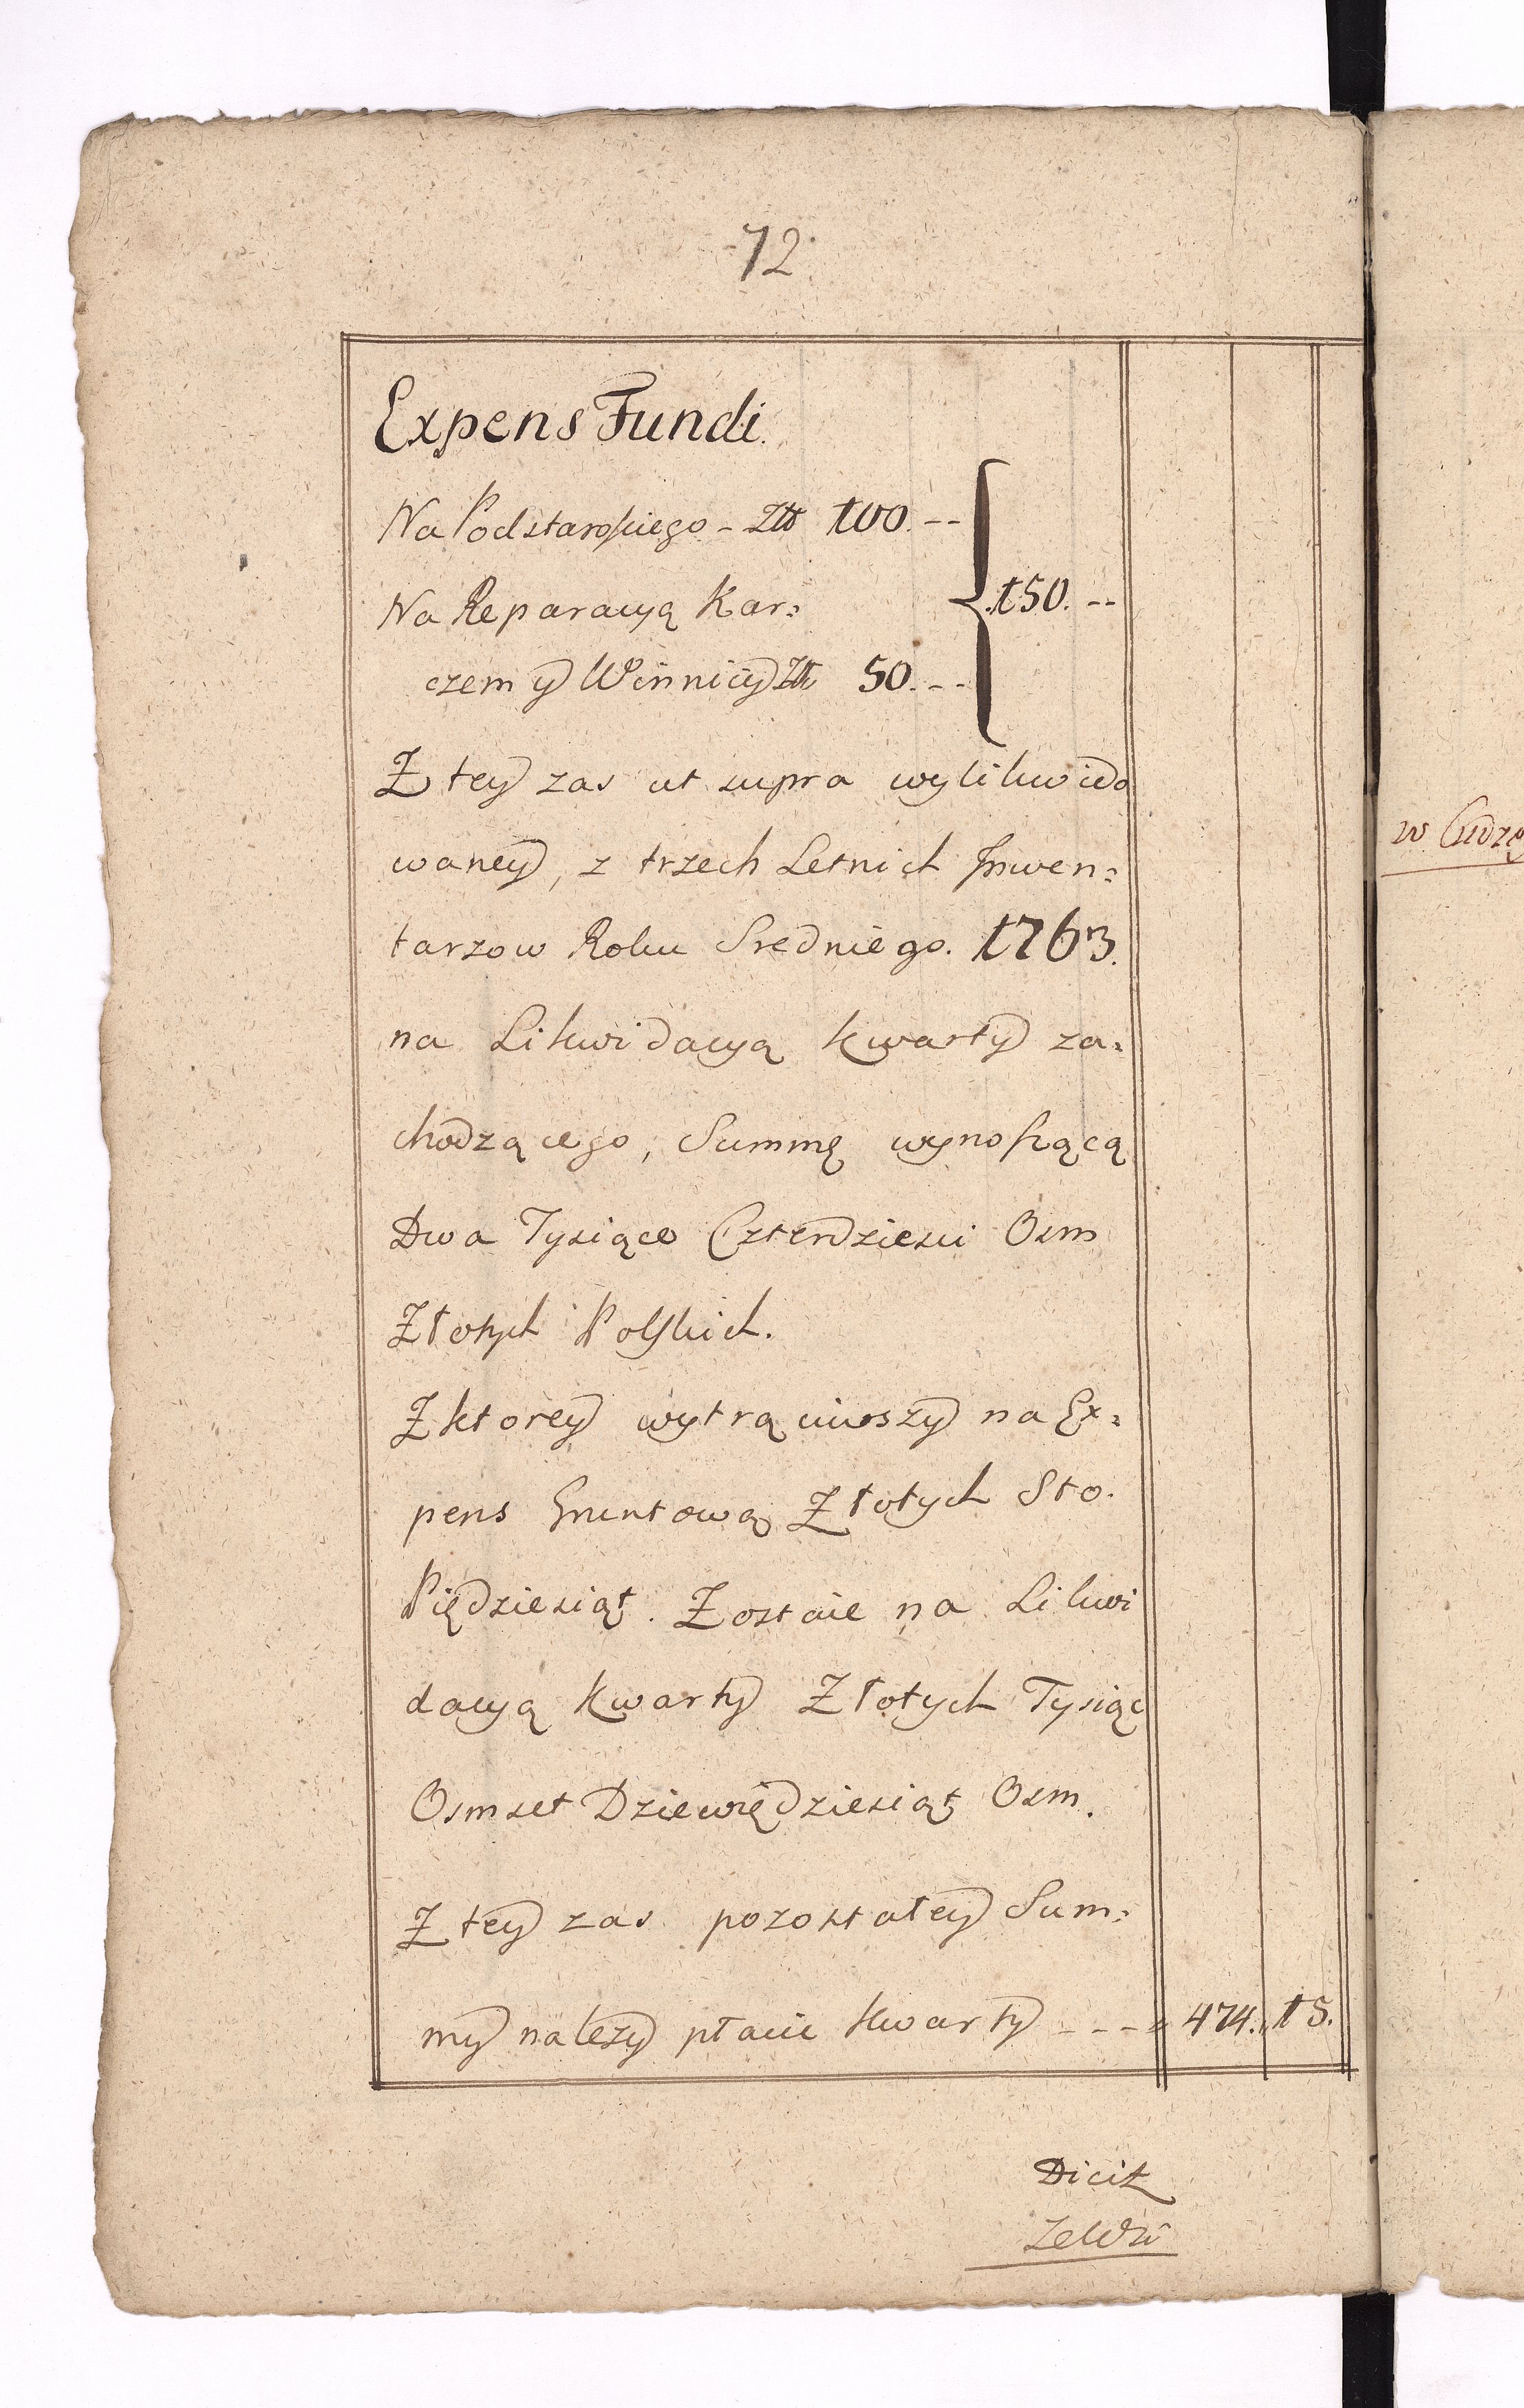 72.
Expens Fundi.
Na Podstaroſciego - Złł 100. --
Na Reparacyą Kar=
150. --
czem y Winnicy Złł 50. --
Z tey zas ut supra wylikwido
waney, z trzech Letnich Inwen=
tarzow Roku Sredniego. 1763.
na Likwidacyą kwarty za=
chodzącego, Summę wynoſzącą
Dwa Tysiące Czterdziesci Osm
Złotych Polſkich.
Z ktorey wytrąciwszy na Ex=
pens Gruntową Złotych Sto.
Piędziesiąt. Zostaie na Likwi
dacyą kwarty Złotych Tysiąc
Osmset Dziewiędziesiąt Osm.
Z tey zas pozostałey Sum=
my nalezy płacic kwarty - - - 474. 15.
w Cudzę